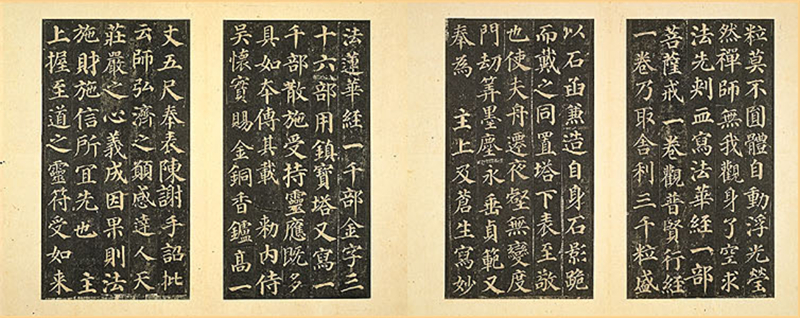 粒莫不圓體自動浮光瑩
然禪師無我觀身了空求
法先刺血寫法華經一部
菩薩戒一卷觀普賢行經
一卷乃取舍利三千粒盛
以石函兼造自身石影跪
而戴之同置塔下表至敬
也使夫舟遷夜壑無變度
門劫筭墨塵永垂貞範又
奉為 主上及蒼生寫妙
法蓮華經一千部金字三
十六部用鎮寶塔又寫一
千部散施受持靈應既多
具如本傳其載 勑內侍
吳懷實賜金銅香鑪高一
丈五尺奉表陳謝手詔批
云師弘濟之願感達人天
莊嚴之心義成因果則法
施財施信所宜先也 主
上握至道之靈符受如來